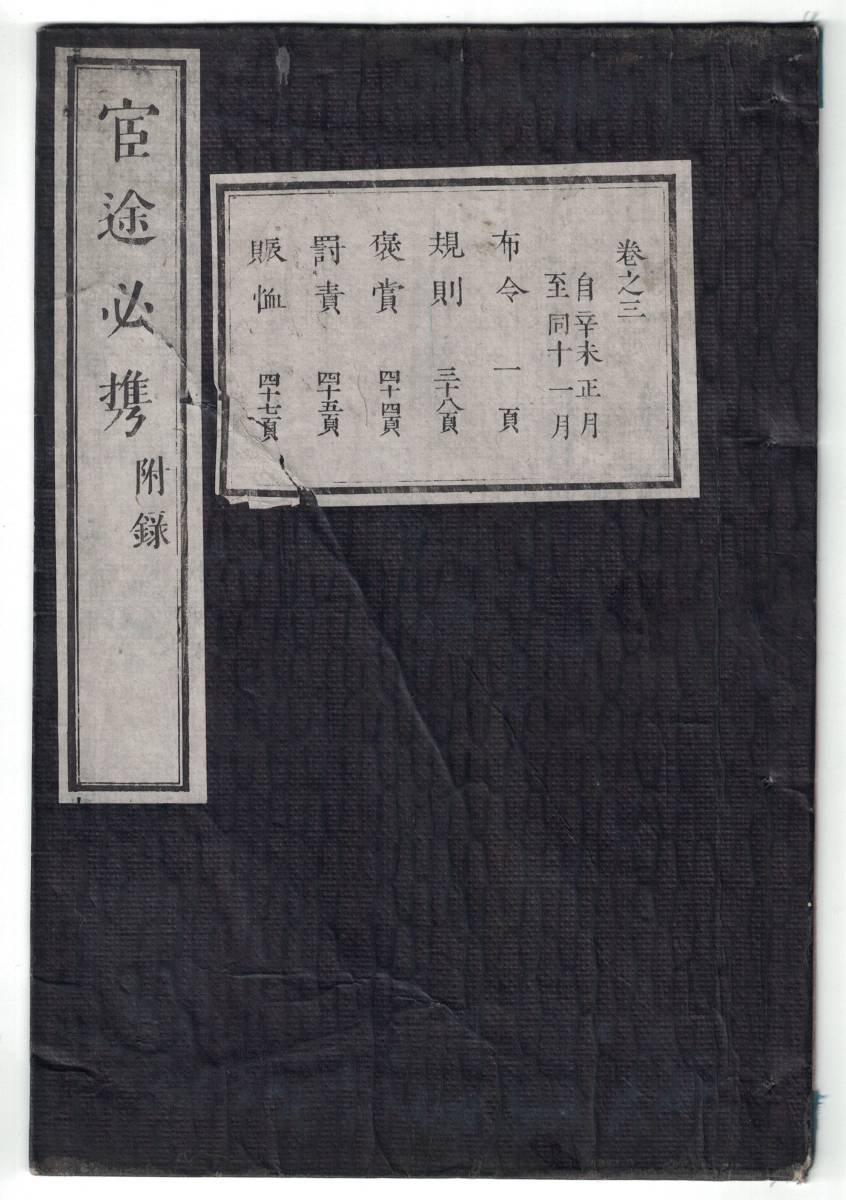 卷之三
自辛未正月
至同十一月
布令 一頁
規則 三十八頁
褒賞 四十四頁
罸責 四十五頁
賑恤 四十七頁
宦途必携 附錄